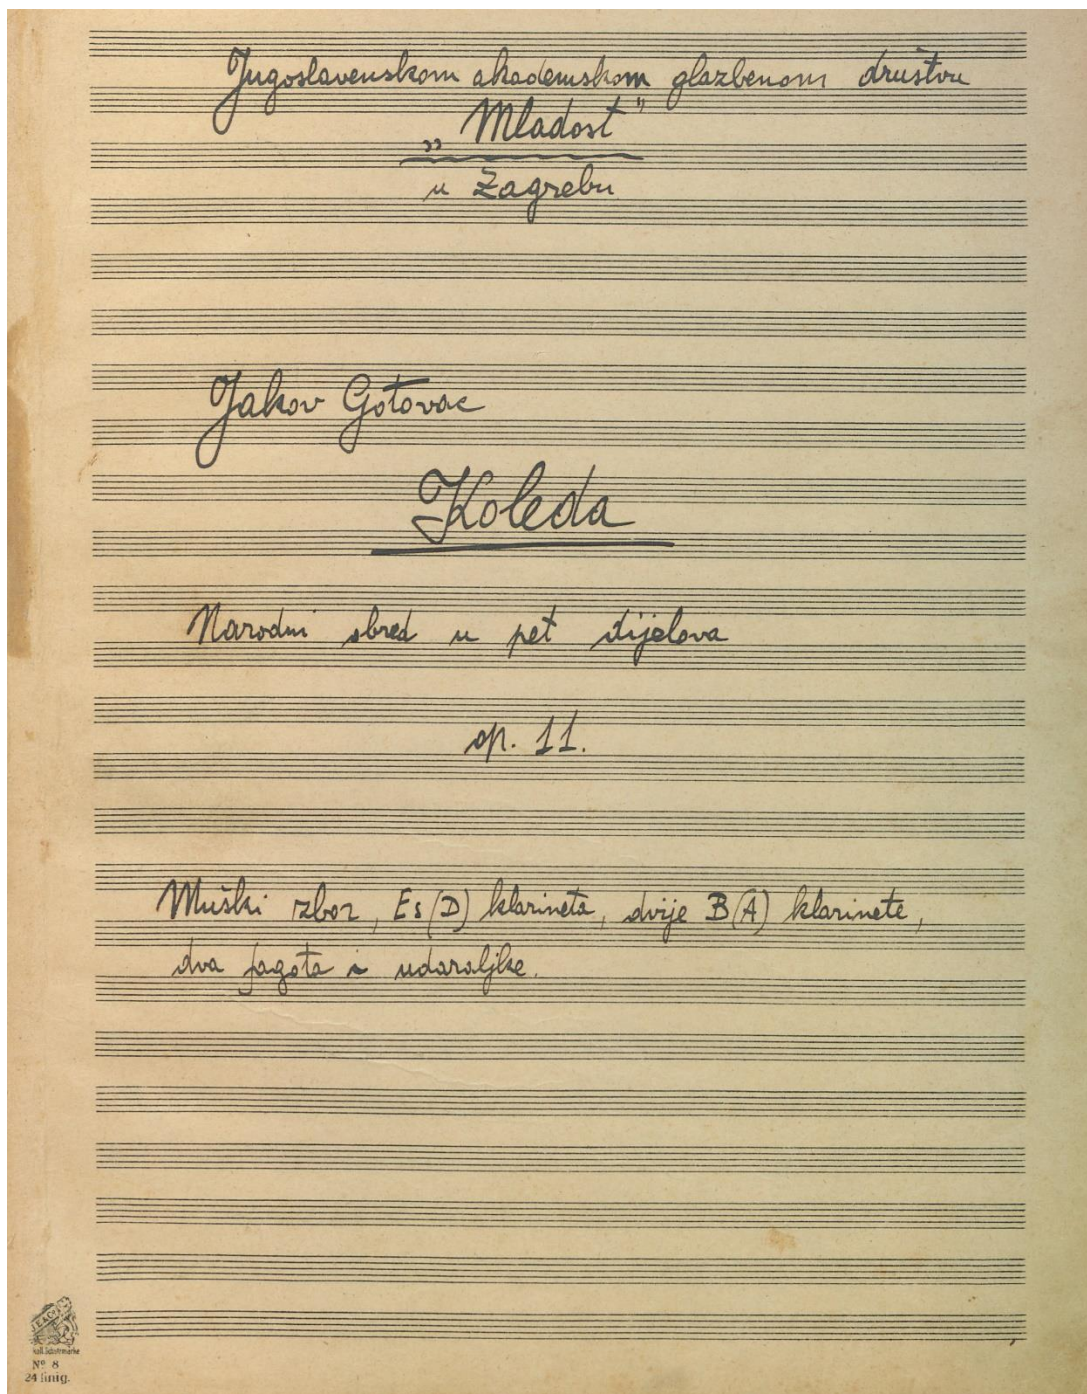 Jugoslavenskom akademskom glazbenom društvu
„Mladost"
u Zagrebu
Jakov Gotovac
Koleda
Narodni obred u pet dijelova
op. 11.
Muški zbor, Es(D) klarineta, dvije B(A) klarinete,
dva fagota i udaraljke.
Nº 8
24 linig.